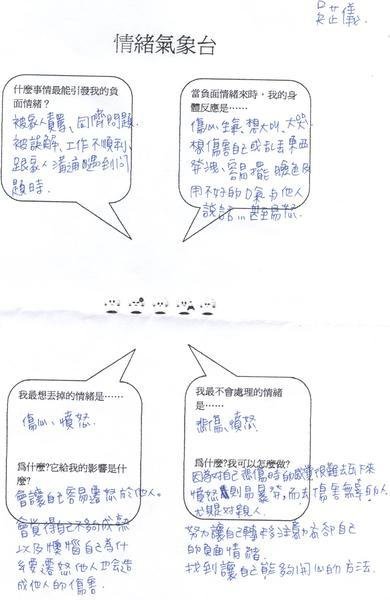 芷儀
情緒氣象台
什麼事情最能引發我的負
面情緒?
被家人責罵、同儕問題、
被誤解、工作不順利、
跟家人溝通遇到問
題時.
當負面情緒來時，我的身
體反應是……
傷心、生氣、想大叫、大哭
想傷害自己或亂丟東西
發洩、容易擺臉色及
用不好的口氣與他人
說話…甚至易怒.
我最想丟掉的情緒是……
傷心、憤怒.
為什麼?它給我的影響是什
麼?
會讓自己容易遷怒於他人。
會覺得自己不夠成熟
以及懊惱自己為什
麼要遷怒他人也會造
成他人的傷害.
我最不會處理的情緒
是……
悲傷、憤怒.
為什麼?我可以怎麼做?
因為對自己悲傷時的感覺很難去放下來
憤怒則易暴發,而去傷害無辜的人
尤期對親人.
努力讓自己轉移注意力忘卻自己
的負面情緒.
找到讓自己能夠開心的方法.